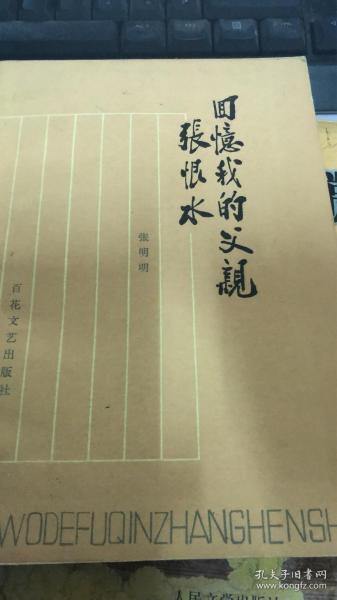 回憶我的父親
張恨水
张明明
百花文艺出版社
WODEFUQINZHANGHENSH
人民文学出版社
孔夫子旧书网